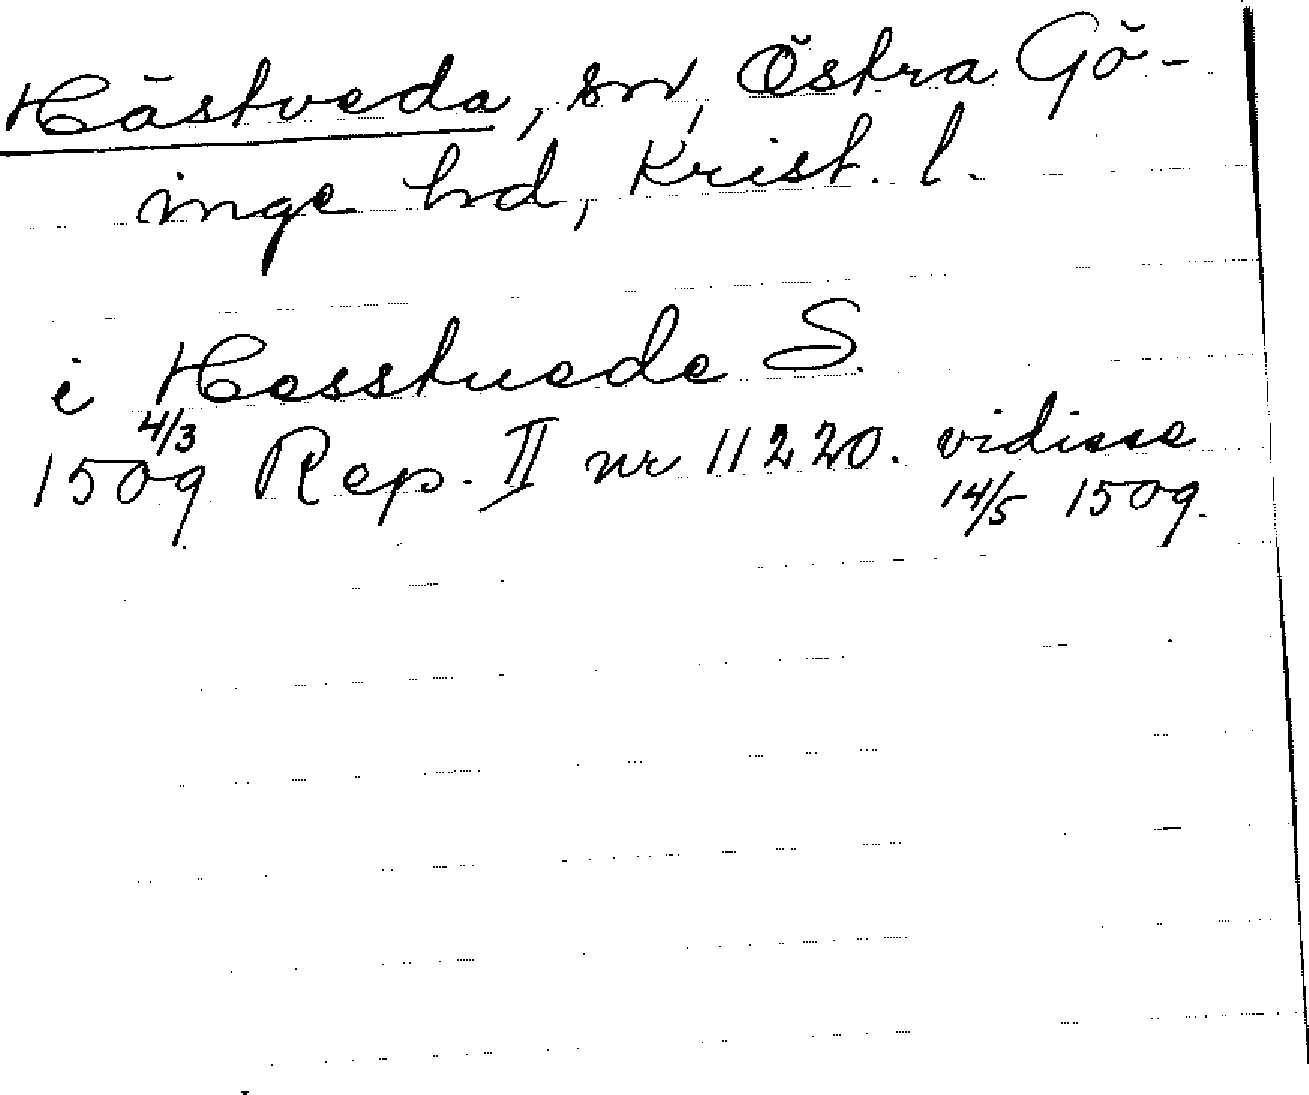 Hästveda, sn, Östra Gö-
inge hd, Krist. l.
i Hesstuede S.
4/3
1509 Rep. II nr 11220. vidisse
14/5 1509.